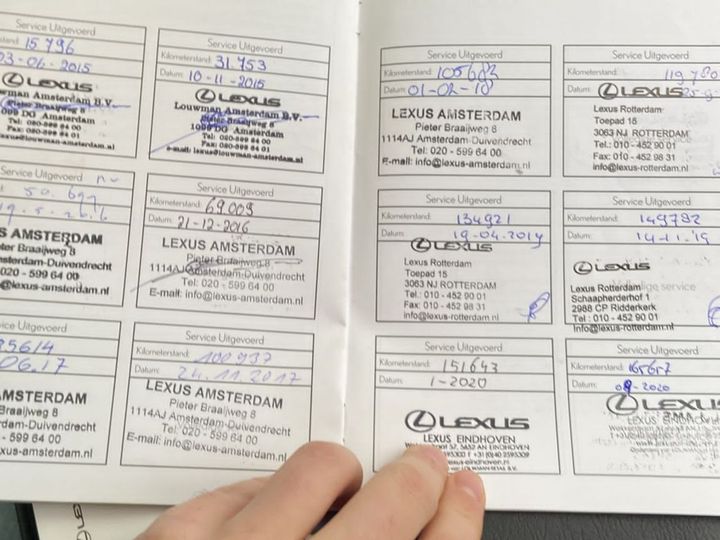 Service Uitgevoerd
stand: 15 796
03-06-2015
LEXUS
wman Amsterdam B.V.
Pieter Braaijweg 8
1099 DG Amsterdam
Tel: 020-599 64 00
Fax: 020-599 64 01
exus@louwman-amsterdam.nl
Service Uitgevoerd
Kilometerstand: 31.753
Datum: 10-11-2015
LEXUS
Louwman Amsterdam B.V.
Pieter Braaijweg 8
1099 DG Amsterdam
Tel: 020-599 64 00
Fax: 020-599 64 01
e-mail: lexus@louwman-amsterdam.nl
Service Uitgevoerd
S AMSTERDAM
ieter Braaijweg 8
msterdam-Duivendrecht
020 - 599 64 00
@lexus-amsterdam.nl
Service Uitgevoerd
Kilometerstand: 69009
Datum: 21-12-2016
LEXUS AMSTERDAM
Pieter Braaijweg 8
1114AJ Amsterdam-Duivendrecht
Tel: 020 - 599 64 00
E-mail: info@lexus-amsterdam.nl
ce Uitgevoerd
85614
06.17
S AMSTERDAM
er Braaijweg 8
sterdam-Duivendrecht
20 - 599 64 00
@lexus-amsterdam.nl
Service Uitgevoerd
Kilometerstand: 100937
Datum: 24.11.2017
LEXUS AMSTERDAM
Pieter Braaijweg 8
1114AJ Amsterdam-Duivendrecht
Tel: 020 - 599 64 00
E-mail: info@lexus-amsterdam.nl
Service Uitgevoerd
Kilometerstand: 105683
Datum: 01-02-18
LEXUS AMSTERDAM
Pieter Braaijweg 8
1114AJ Amsterdam-Duivendrecht
Tel: 020 - 599 64 00
E-mail: info@lexus-amsterdam.nl
Service Uitgevoerd
Kilometerstand: 119780
Datum:
LEXUS
Lexus Rotterdam
Toepad 15
3063 NJ ROTTERDAM
Tel.: 010 - 452 90 01
Fax: 010 - 452 98 31
info@lexus-rotterdam.nl
Service Uitgevoerd
Kilometerstand: 134921
Datum: 19-04.2019
LEXUS
Lexus Rotterdam
Toepad 15
3063 NJ ROTTERDAM
Tel.: 010 - 452 90 01
Fax: 010 - 452 98 31
info@lexus-rotterdam.nl
Service Uitgevoerd
Kilometerstand: 149782
Datum: 14-11.'19
LEXUS
Lexus Rotterdam
Schaapherderhof 1
2988 CP Ridderkerk
Tel.: 010 - 452 90 01
info@lexus-rotterdam.nl
Service Uitgevoerd
Kilometerstand: 151643
Datum: 1-2020
LEXUS
LEXUS EINDHOVEN
Service Uitgevoerd
Kilometerstand: 165657
Datum: 09-2020
LEXUS
LEXUS EINDHOVEN